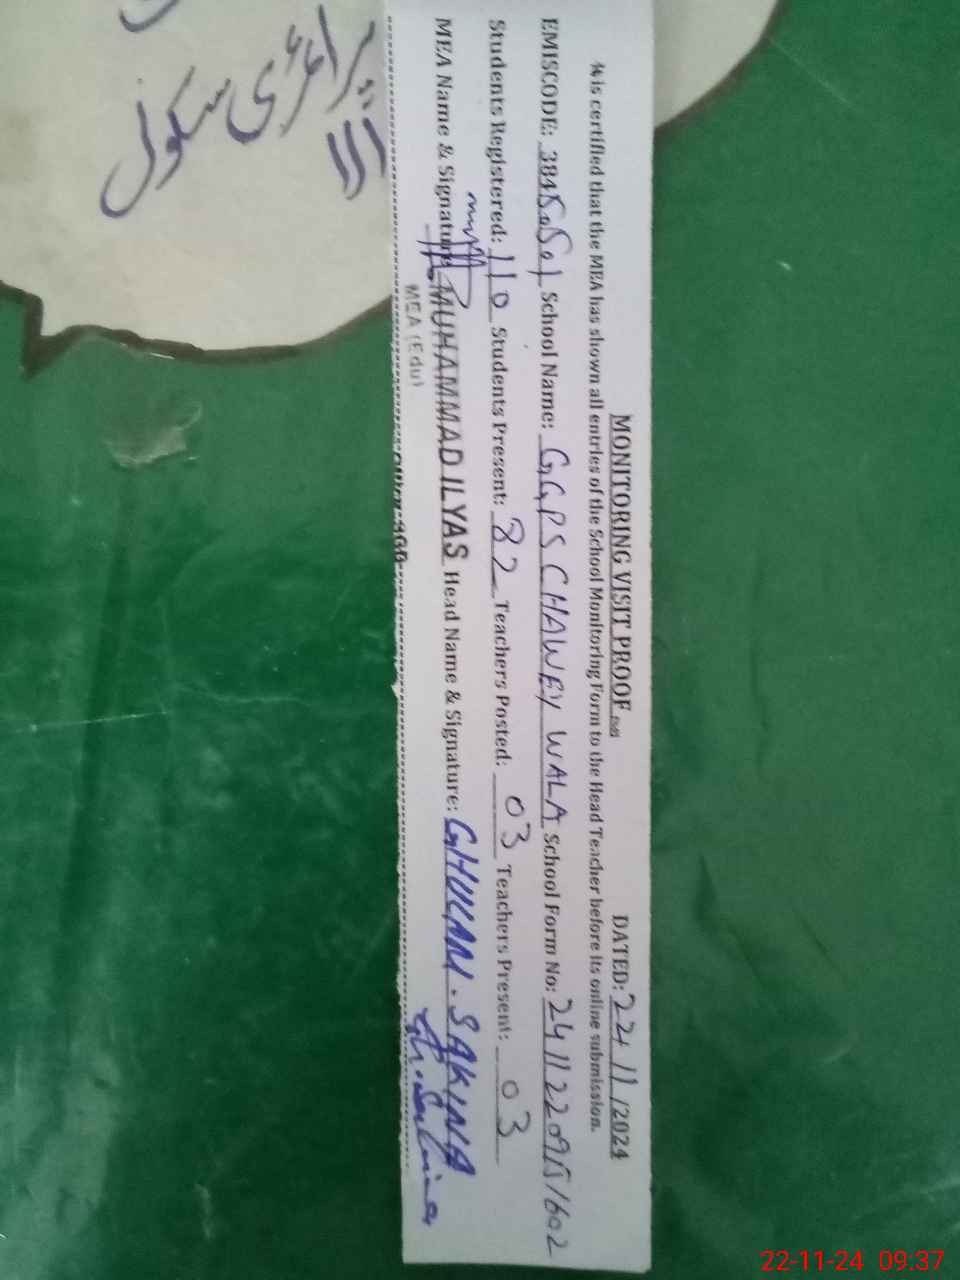 پرائمری سکول
MONITORING VISIT PROOF DATED: 22/11/2024
It is certified that the MEA has shown all entries of the School Monitoring Form to the Head Teacher before its online submission.
EMISCODE: 38450501 School Name: GGPS CHAWEY WALA School Form No: 24112209151602
Students Registered: 110 Students Present: 82 Teachers Posted: 03 Teachers Present: 03
MEA Name & Signature: MUHAMMAD ILYAS Head Name & Signature: GHULAM. SAKINA
MEA (Edu)
22-11-24 09.37